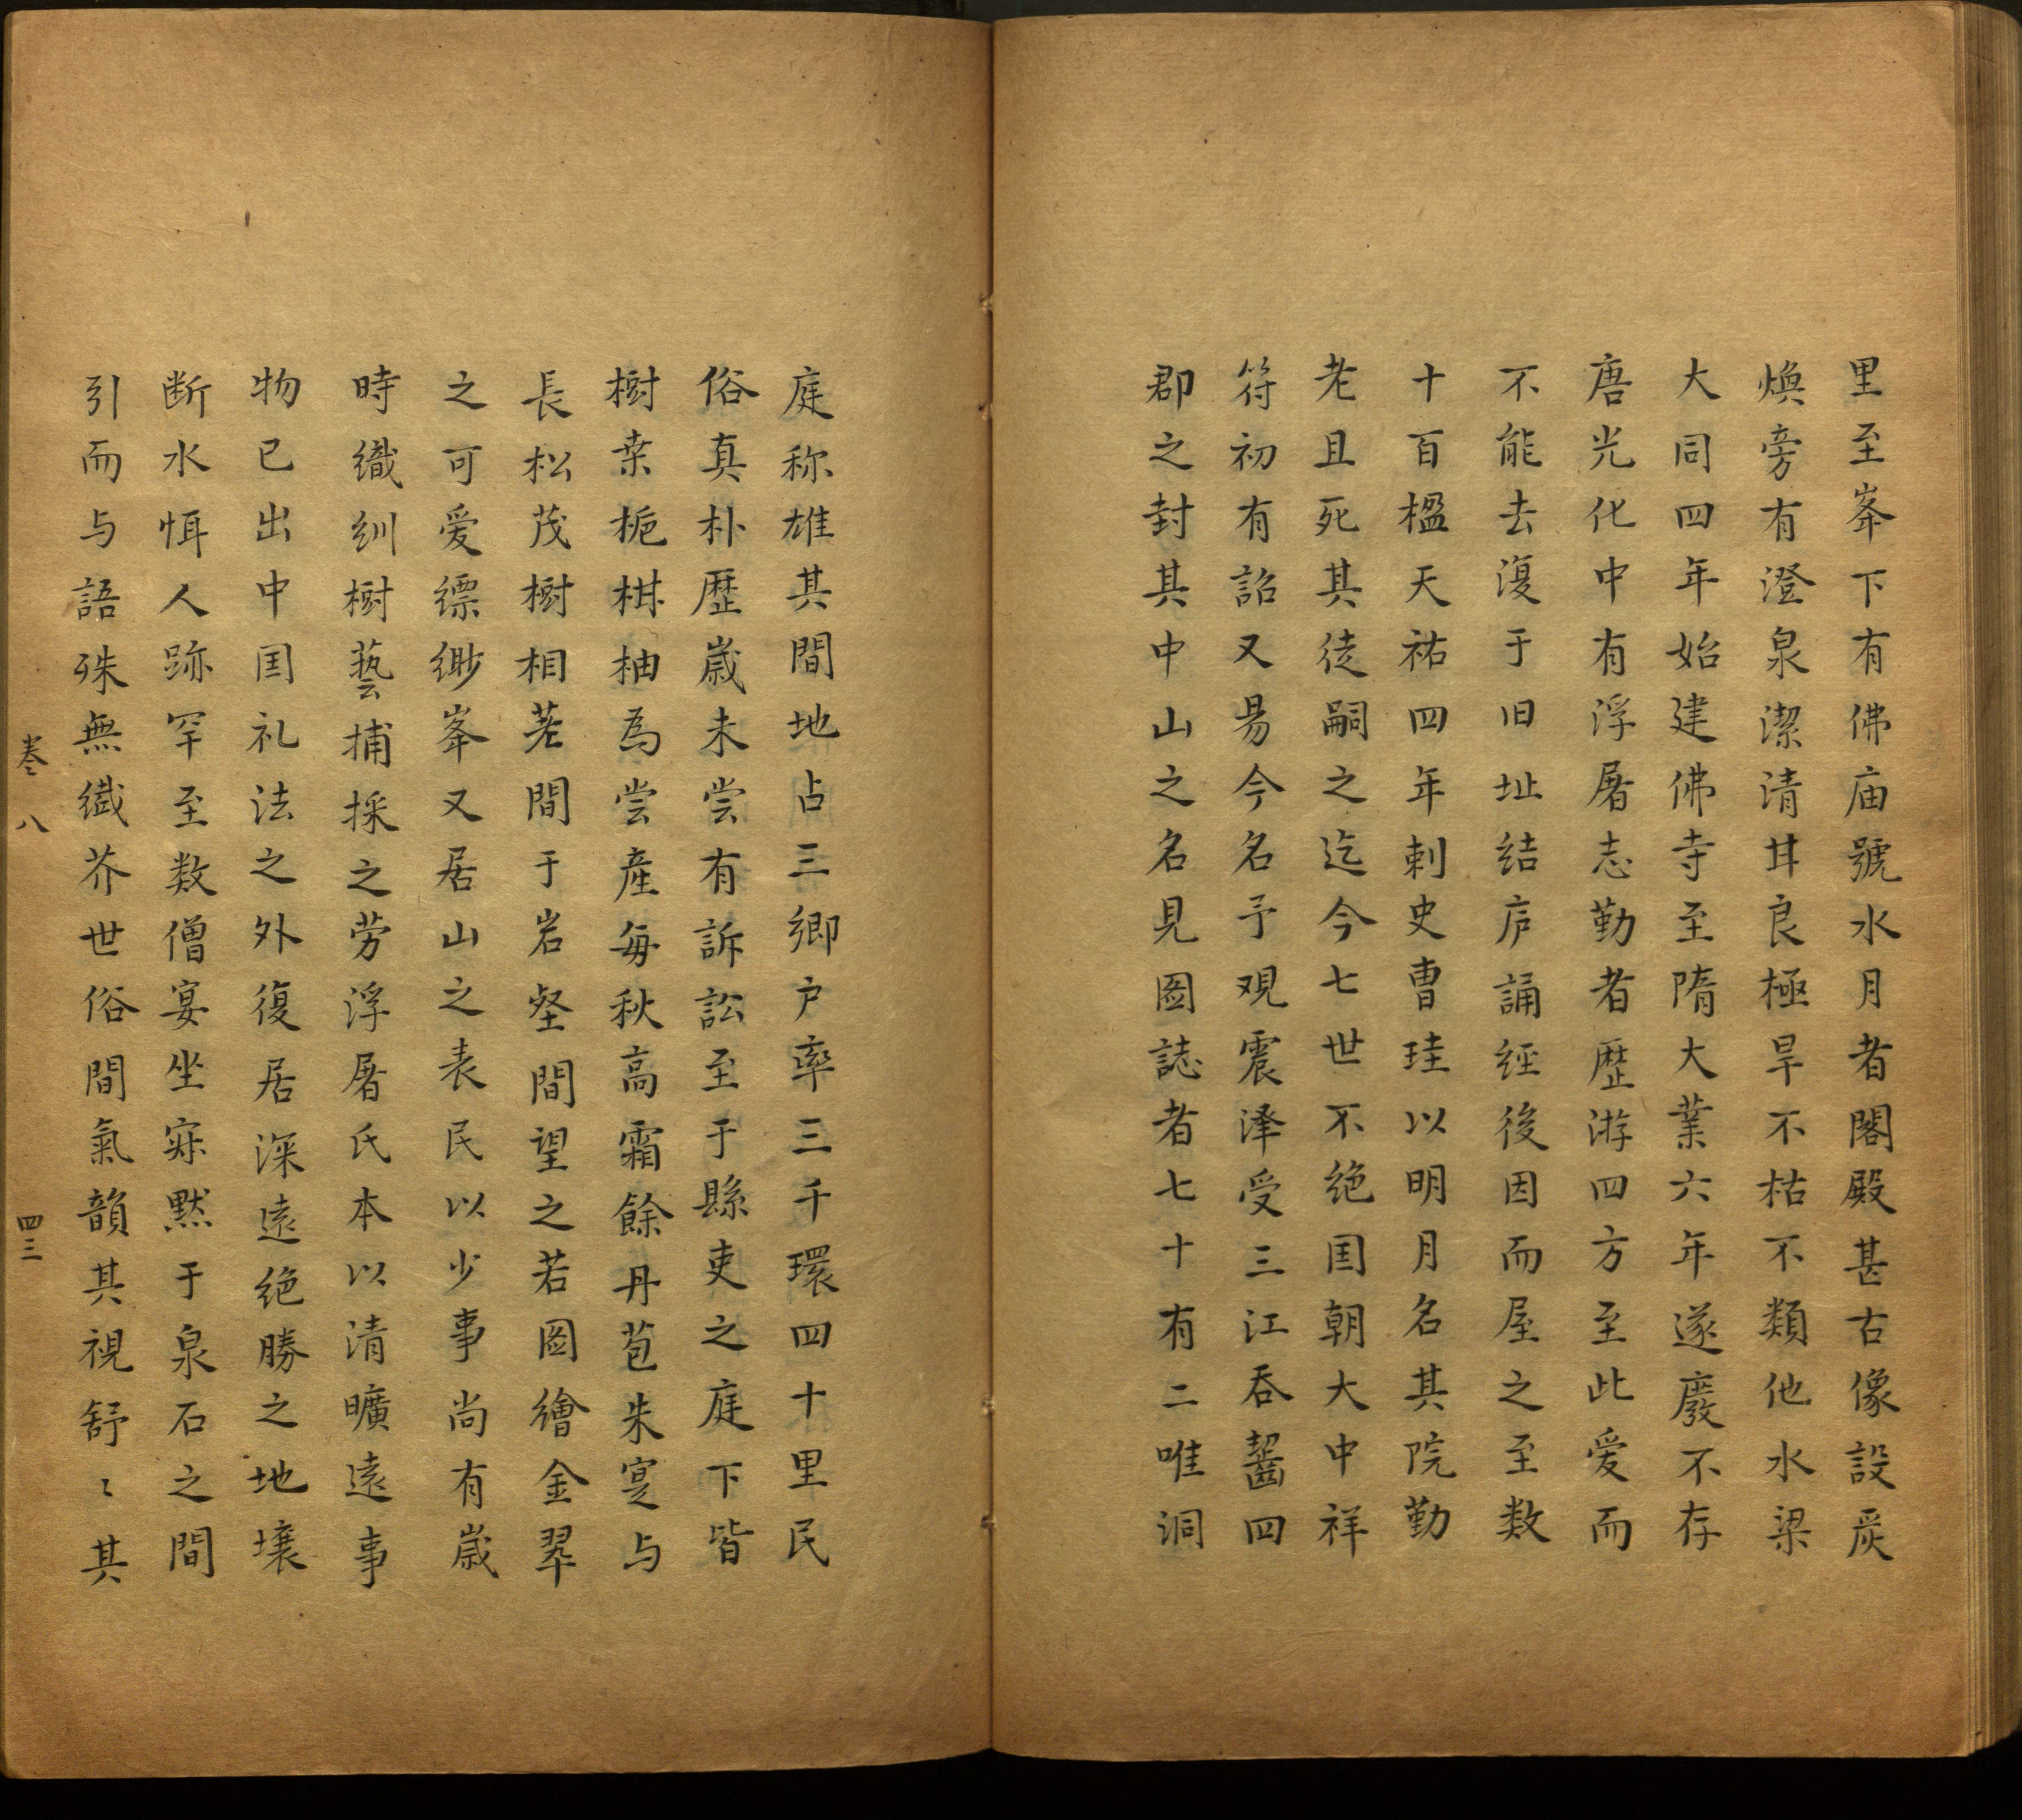 里至峯下有佛庙號水月者閣殿甚古像設炭
煥旁有澄泉潔清甘良極旱不枯不類他水梁
大同四年始建佛寺至隋大業六年遂廢不存
唐光化中有浮屠志勤者歴游四方至此爱而
不能去復于旧址结庐誦経後因而屋之至数
十百楹天祐四年刺史曹珪以明月名其院勤
老且死其徒嗣之迄今七世不绝国朝大中祥
符初有詔又昜今名予观震泽受三江吞齧四
郡之封其中山之名見图誌者七十有二唯洞
庭称雄其間地占三鄉户率三千環四十里民
俗真朴歴歳未尝有訴訟至于縣吏之庭下皆
樹桒栀柑柚為尝産每秋高霜餘丹苞朱寔与
長松茂樹相差間于岩壑間望之若图繪金翠
之可爱縹缈峯又居山之表民以少事尚有歳
時織紃樹藝捕採之劳浮屠氏本以清曠遠事
物已出中国礼法之外復居深遠绝勝之地壤
断水恒人跡罕至数僧宴坐寂黙于泉石之間
引而与語殊無纎芥世俗間氣韻其視舒〻其
卷八
四三